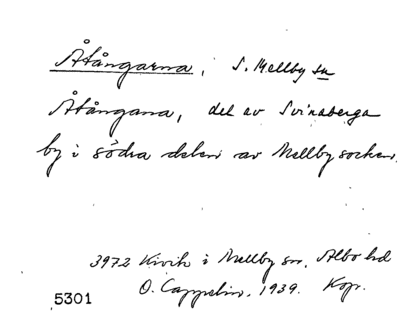 Åtångarna, S. Mellby sn
Åtångana, del av Svinaberga
by i södra delen av Mellby socken.
3972 Kivik i Mellby sn, Albo hd
O. Cappelin, 1939. Kop.
5301